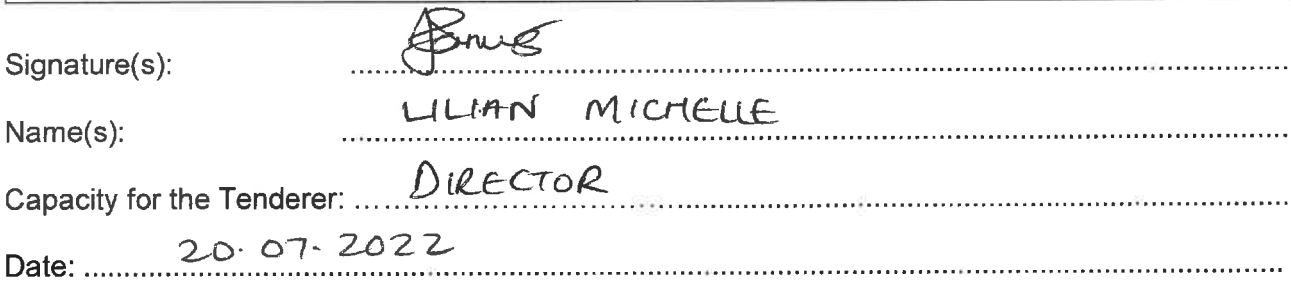 Signature(s):
Name(s): LILIAN MICHELLE
Capacity for the Tenderer: DIRECTOR
Date: 20.07.2022